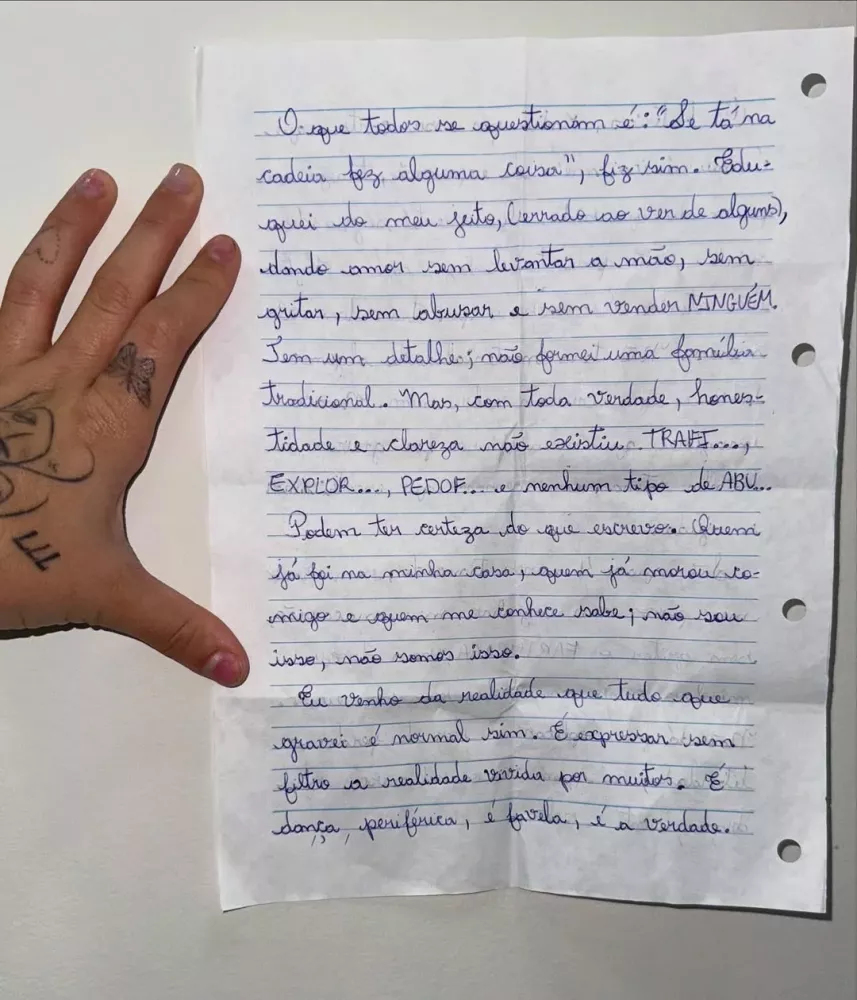 O que todos se questionam é: "Se tá na
cadeia fez alguma coisa", fiz sim. Edu-
quei do meu jeito, (errado ao ver de alguns),
dando amor sem levantar a mão, sem
gritar, sem abusar e sem vender NINGUÉM.
Tem um detalhe; não formei uma família
tradicional. Mas, com toda verdade, hones-
tidade e clareza não existiu TRAFI...,
EXPLOR..., PEDOF... e nenhum tipo de ABU...
Podem ter certeza do que escrevo. Quem
já foi na minha casa, quem já morou co-
migo e quem me conhece sabe; não sou
isso, não somos isso.
Eu venho da realidade que tudo que
gravei é normal sim. É expressar sem
filtro a realidade vivida por muitos. É
dança periférica, é favela, é a verdade.